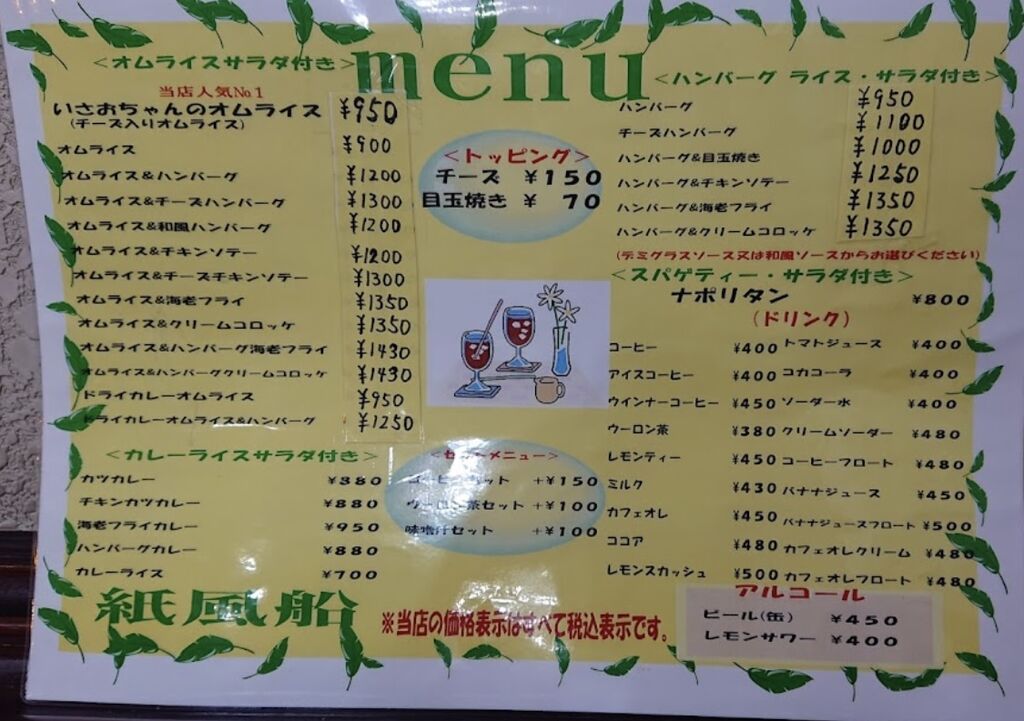 menu
<オムライスサラダ付き>
当店人気No1
いさおちゃんのオムライス ¥950
(チーズ入りオムライス)
オムライス ¥900
オムライス&ハンバーグ ¥1200
オムライス&チーズハンバーグ ¥1300
オムライス&和風ハンバーグ ¥1200
オムライス&チキンソテー ¥1200
オムライス&チーズチキンソテー ¥1300
オムライス&海老フライ ¥1350
オムライス&クリームコロッケ ¥1350
オムライス&ハンバーグ海老フライ ¥1430
オムライス&ハンバーグクリームコロッケ ¥1430
ドライカレーオムライス ¥950
ドライカレーオムライス&ハンバーグ ¥1250
<カレーライスサラダ付き>
カツカレー ¥880
チキンカツカレー ¥880
海老フライカレー ¥950
ハンバーグカレー ¥880
カレーライス ¥700
紙風船
<トッピング>
チーズ ¥150
目玉焼き ¥ 70
<セットメニュー>
コーヒーセット +¥150
ウーロン茶セット +¥100
味噌汁セット +¥100
<ハンバーグ ライス・サラダ付き>
ハンバーグ ¥950
チーズハンバーグ ¥1100
ハンバーグ&目玉焼き ¥1000
ハンバーグ&チキンソテー ¥1250
ハンバーグ&海老フライ ¥1350
ハンバーグ&クリームコロッケ ¥1350
(デミグラスソース又は和風ソースからお選びください)
<スパゲティー・サラダ付き>
ナポリタン ¥800
(ドリンク)
コーヒー ¥400
アイスコーヒー ¥400
ウインナーコーヒー ¥450
ウーロン茶 ¥380
レモンティー ¥450
ミルク ¥430
カフェオレ ¥450
ココア ¥480
レモンスカッシュ ¥500
トマトジュース ¥400
コカコーラ ¥400
ソーダー水 ¥400
クリームソーダー ¥480
コーヒーフロート ¥480
バナナジュース ¥450
バナナジュースフロート ¥500
カフェオレクリーム ¥480
カフェオレフロート ¥480
アルコール
ビール(缶) ¥450
レモンサワー ¥400
※当店の価格表示はすべて税込表示です。